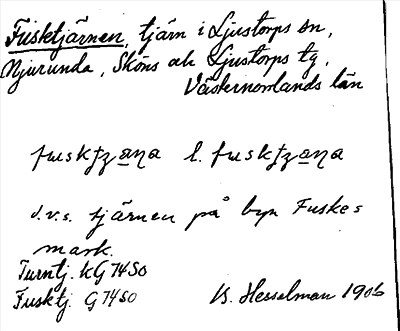 Fusktjärnen, tjärn i Ljustorps sn,
Njurunda, Sköns och Ljustorps tg,
Västernorrlands län
fuskʈʒa̲ŋa l. fuskʈʒa̲ŋa
d.v.s. tjärnen på byn Fuskes
mark.
Turntj. kG 7450
Fusktj. G 7450 B. Hesselman 1906